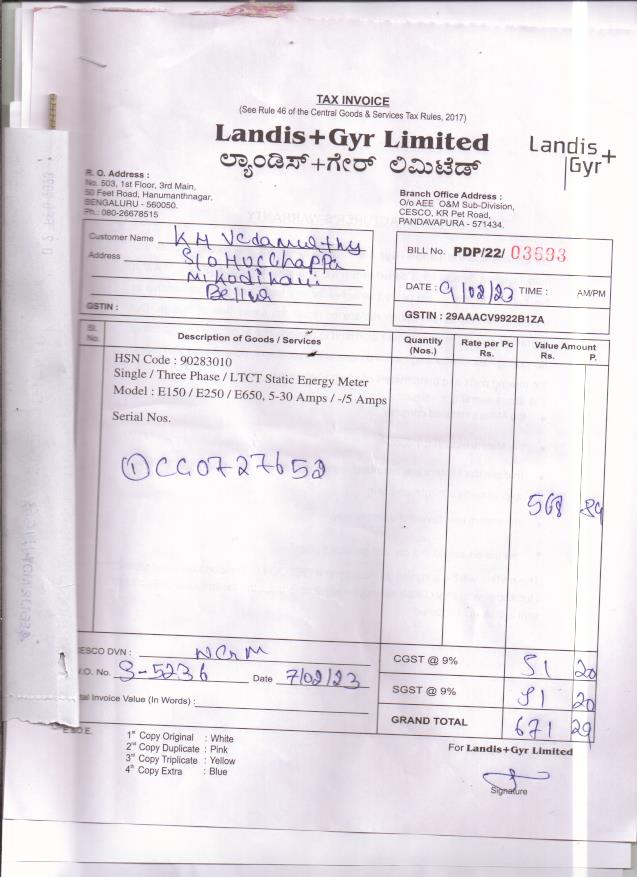 TAX INVOICE
(See Rule 46 of the Central Goods & Services Tax Rules, 2017)
Landis+Gyr Limited
ಲ್ಯಾಂಡಿಸ್+ಗೇರ್ ಲಿಮಿಟೆಡ್
Landis+
Gyr
R. O. Address :
No. 503, 1st Floor, 3rd Main,
50 Feet Road, Hanumanthnagar,
BENGALURU - 560050.
Ph.: 080-26678515
Branch Office Address :
O/o AEE O&M Sub-Division,
CESCO, KR Pet Road,
PANDAVAPURA - 571434.
Customer Name K M Vedamurthy
Address S/o Hucchappa
Bellur
GSTIN :
BILL No. PDP/22/ 03693
DATE : 9/02/23 TIME : AM/PM
GSTIN : 29AAACV9922B1ZA
Sl. No. Description of Goods / Services Quantity (Nos.) Rate per Pc Rs. Value Amount Rs. P.
HSN Code : 90283010
Single / Three Phase / LTCT Static Energy Meter
Model : E150 / E250 / E650, 5-30 Amps / -/5 Amps
Serial Nos.
① CG0727652
568 89
CESCO DVN : NGM
W.O. No. S-5236 Date 7/02/23
Total Invoice Value (In Words) :
CGST @ 9% 51 20
SGST @ 9% 51 20
GRAND TOTAL 671 29
E & O E.
1st Copy Original : White
2nd Copy Duplicate : Pink
3rd Copy Triplicate : Yellow
4th Copy Extra : Blue
For Landis+Gyr Limited
Signature